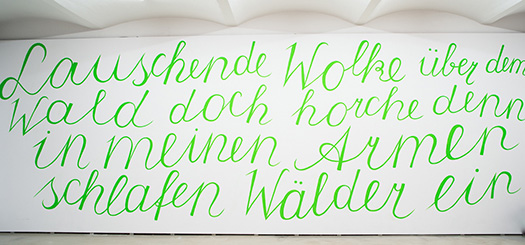 Lauschende Wolke über dem
Wald doch horche denn
in meinen Armen
schlafen Wälder ein